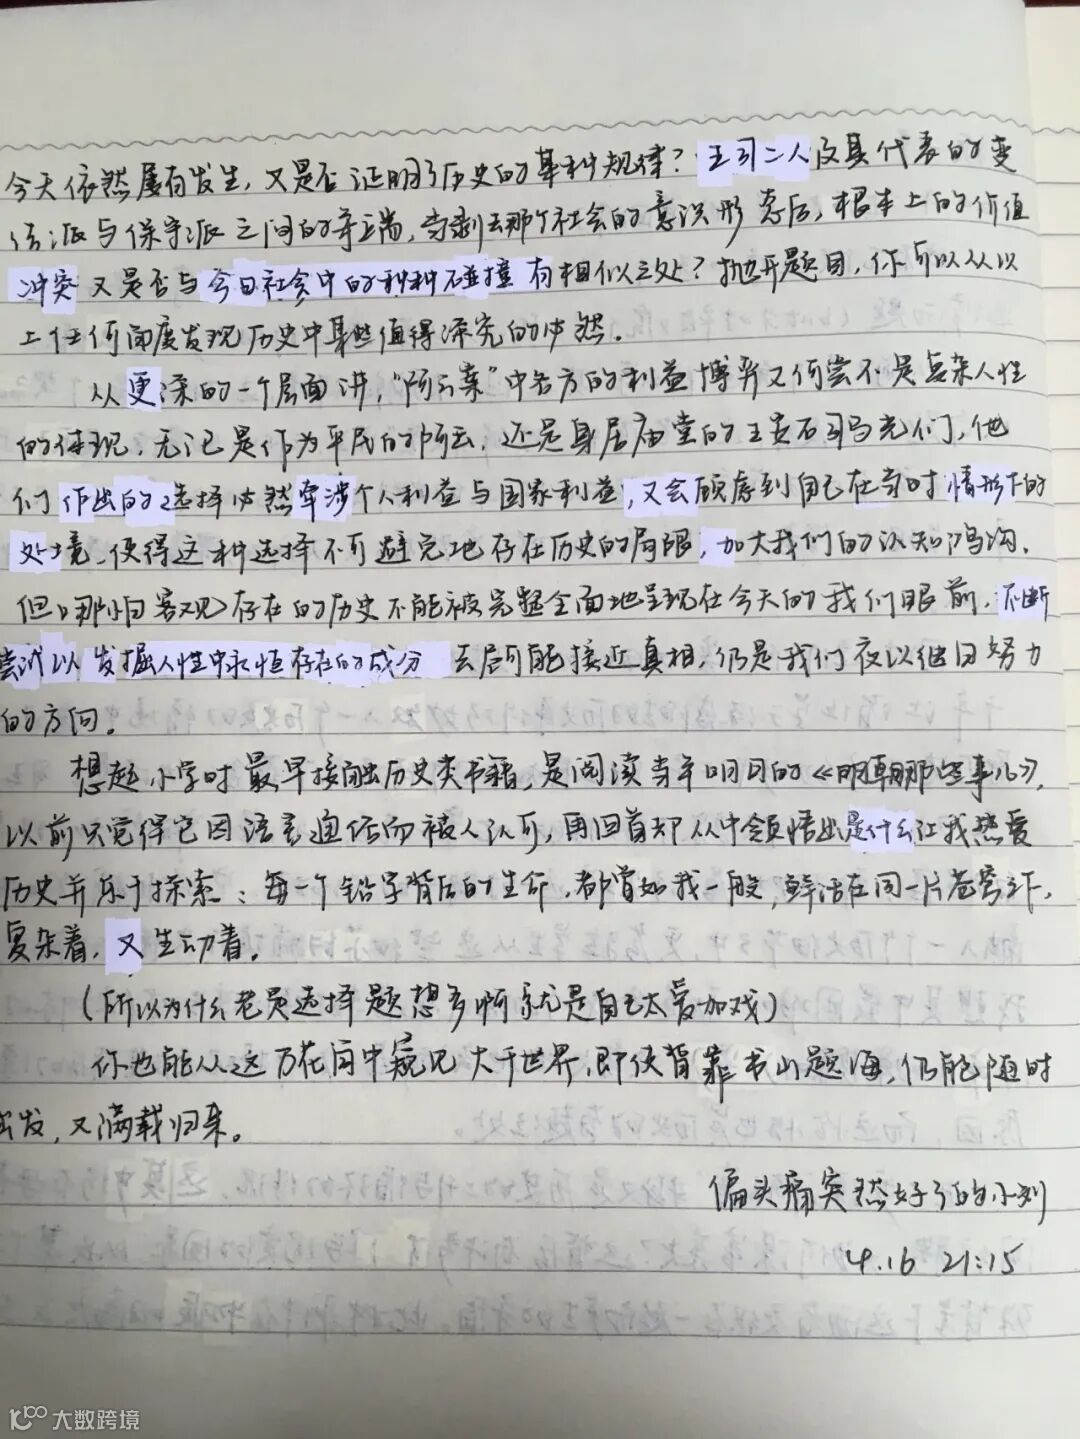 今天依然屡有发生，又是否证明了历史的某种规律？王司二人及其代表的变
法派与保守派之间的争端，穿刺去那个社会的意识形态后，根本上的价值
冲突又是否与今日社会中的种种碰撞有相似之处？抛开题目，你可以从以
上任何角度发现历史中某些值得深究的必然。
从更深的一个层面讲，“阿云案”中各方的利益博弈又何尝不是复杂人性
的体现，无论是作为平民的阿云，还是身居庙堂的王安石司马光们，他
们作出的选择必然牵涉个人利益与国家利益，又会顾虑到自己在当时情形下的
处境，使得这种选择不可避免地存在历史的局限，加大我们的认知鸿沟。
但，哪怕客观存在的历史不能被完整全面地呈现在今天的我们眼前，不断
尝试以发掘人性中永恒存在的成分去尽可能接近真相，仍是我们夜以继日努力
的方向。
想起小学时最早接触历史类书籍，是阅读当年明月的《明朝那些事儿》，
以前只觉得它因语言通俗而被人认可，再回首却从中领悟出是什么让我热爱
历史并乐于探索：每一个铅字背后的生命，都曾如我一般，鲜活在同一片苍穹之下，
复杂着，又生动着。
（所以为什么老是选择题想多啊就是自己太爱加戏）
你也能从这方花间中窥见大千世界，即使背靠书山题海，仍能随时
出发，又满载归来。
偏头痛突然好了的小刘
4.16 21:15
大数跨境